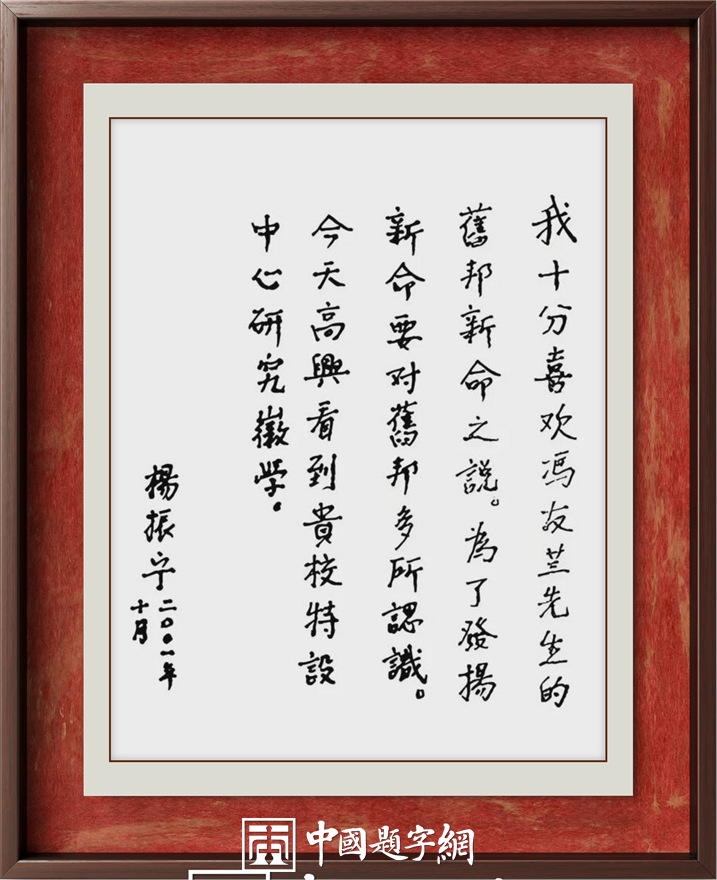 我十分喜欢冯友兰先生的
舊邦新命之説。為了發揚
新命要对舊邦多所認識。
今天高興看到貴校特設
中心研究徽学。
楊振宁
二〇〇一年
十月
中國題字網